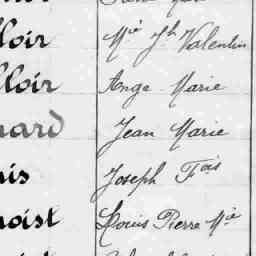 lloir Mie Jh Valentin
lloir Ange Marie
nard Jean Marie
is Joseph Fois
noist Louis Pierre Mie